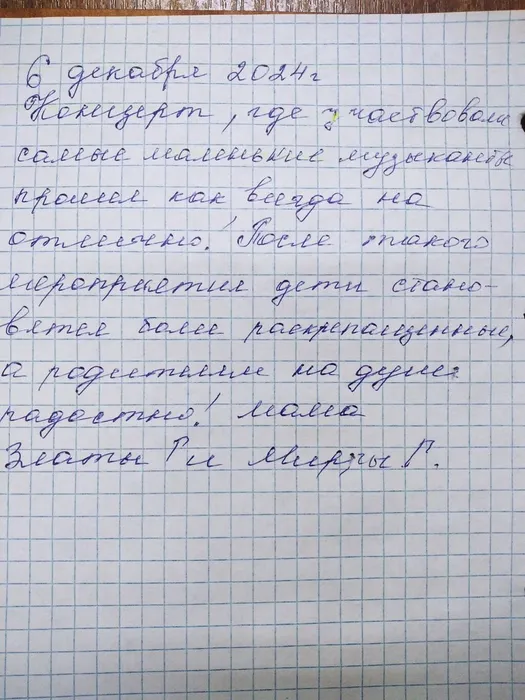 6 декабря 2024г
Концерт, где участвовали
самые маленькие музыканты
прошел как всегда на
отлично! После такого
мероприятия дети стано-
вятся более раскрепощенные,
а родителям на душе
радостно! мама
Златы Г и Мирры Г.